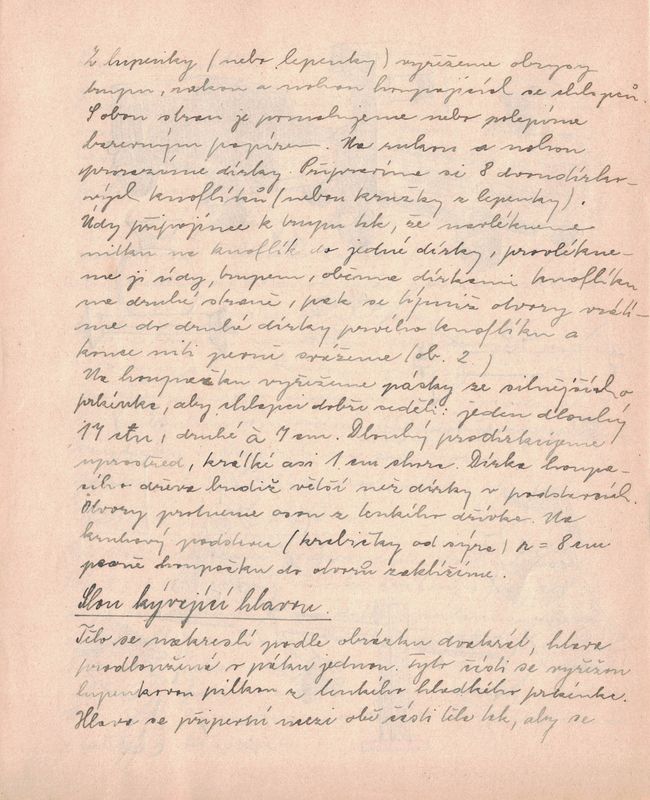 Z lupenky (nebo lepenky) vyřežeme obrysy
trupu, rukou a nohou houpajících se chlapců.
S obou stran je pomalujeme nebo polepíme
barevným papírem. Na rukou a nohou
prorazíme dírky. Připravíme si 8 dvoudírko-
vých knoflíků (nebo kružky z lepenky).
Údy připojíme k trupu tak, že navlékneme
nitku na knoflík do jedné dírky, provlékne-
me ji údy, trupem, oběma dírkami knoflíku
na druhé straně, pak se týmiž otvory vrátí-
me do druhé dírky prvého knoflíku a
konce niti pevně svážeme (ob. 2)
Na houpačku vyřežeme pásky ze silnějšího
prkénka, aby chlapci dobře seděli: jeden dlouhý
17 cm, druhé à 7 cm. Dlouhý prodírkujeme
uprostřed, krátké asi 1 cm shora. Dírka houpa-
cího dřeva budiž větší než dírky v podstavcích.
Otvory protneme osou z tenkého dřívka. Na
kruhový podstavec (krabičky od sýra) r = 8 cm
pevně houpačku do otvorů zaklížíme.
Slon kývející hlavou.
Tělo se nakreslí podle obrázku dvakrát, hlava
prodloužená v páku jednou. Tyto části se vyřežou
lupenkovou pilkou z tenkého hladkého prkénka.
Hlava se připevní mezi obě části těla tak, aby se